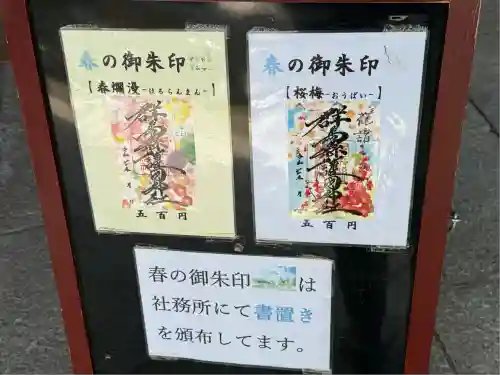 春の御朱印
【春爛漫-はるらんまん-】
五百円
春の御朱印
【桜梅-おうばい-】
群馬県護國神社
五百円
春の御朱印は
社務所にて書置き
を頒布してます。